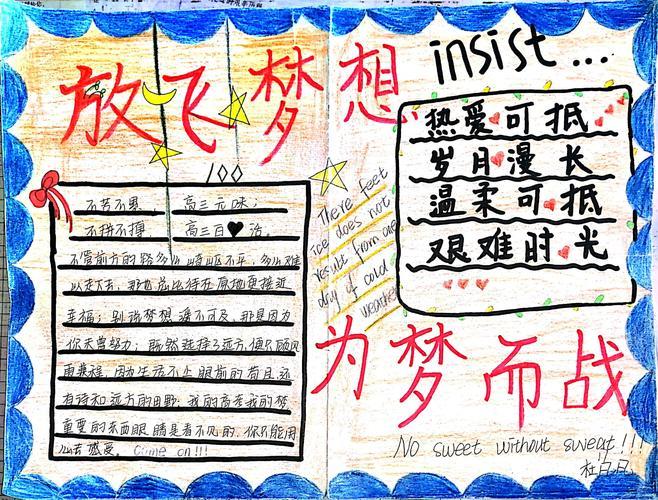 放飞梦想
insist...
100
不苦不累 高三无味；
不拼不搏 高三白♥活。
不管前方的路多么崎岖不平，多么难
以走下去，那也总比待在原地更接近
幸福；别说梦想遥不可及，那是因为
你未曾努力；既然选择了远方，便只顾风
雨兼程，因为生活不止眼前的苟且，还
有诗和远方的田野；我的高考我的梦
重要的东西眼睛是看不见的，你只能用
心去感受。Come on!!!
There feet
ice does not
result from one
day of cold
weather
热爱可抵
岁月漫长
温柔可抵
艰难时光
为梦而战
No sweet without sweat!!!